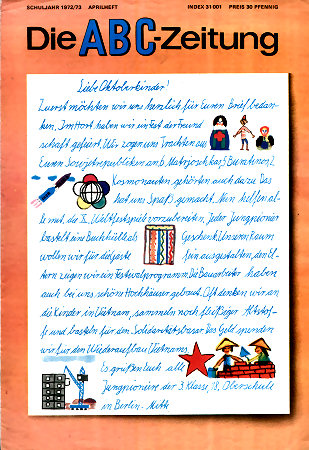 SCHULJAHR 1972/73 APRILHEFT INDEX 31 001 PREIS 30 PFENNIG
Die ABC-Zeitung
Liebe Oktoberkinder!
Zuerst möchten wir uns herzlich für Euren Brief bedan-
ken. Im Hort haben wir ein Fest der Freund
schaft gefeiert. Wir zogen uns Trachten aus
Euren Sowjetrepubliken an. 6 Matrjoschkas, 5 Burattinos, 2
Kosmonauten gehörten auch dazu. Das
hat uns Spaß gemacht. Nun helfen al-
le mit, die X. Weltfestspiele vorzubereiten. Jeder Jungpionier
bastelt eine Buchhülle als Geschenk. Unseren Raum
wollen wir für die Gäste fein ausgestalten, den El-
tern zeigen wir ein Festivalprogramm. Die Bauarbeiter haben
auch bei uns schöne Hochhäuser gebaut. Oft denken wir an
die Kinder in Vietnam, sammeln noch fleißiger Altstof-
fe und basteln für den Solidaritätsbasar. Das Geld spenden
wir für den Wiederaufbau Vietnams.
Es grüßen Euch alle
Jungpioniere der 3. Klasse, 18. Oberschule
in Berlin-Mitte